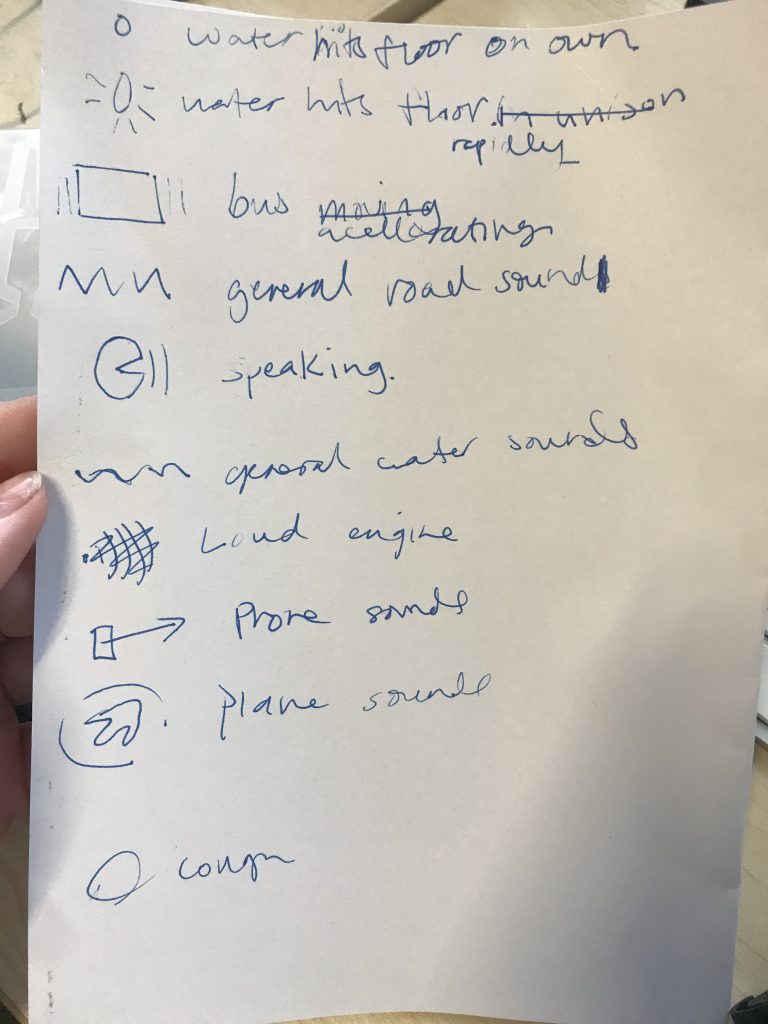 water hits floor on own
water hits floor. in unison
rapidly
bus moving
acellorating
general road sound
speaking.
general water sounds
Loud engine
Phone sounds
plane sounds
cough